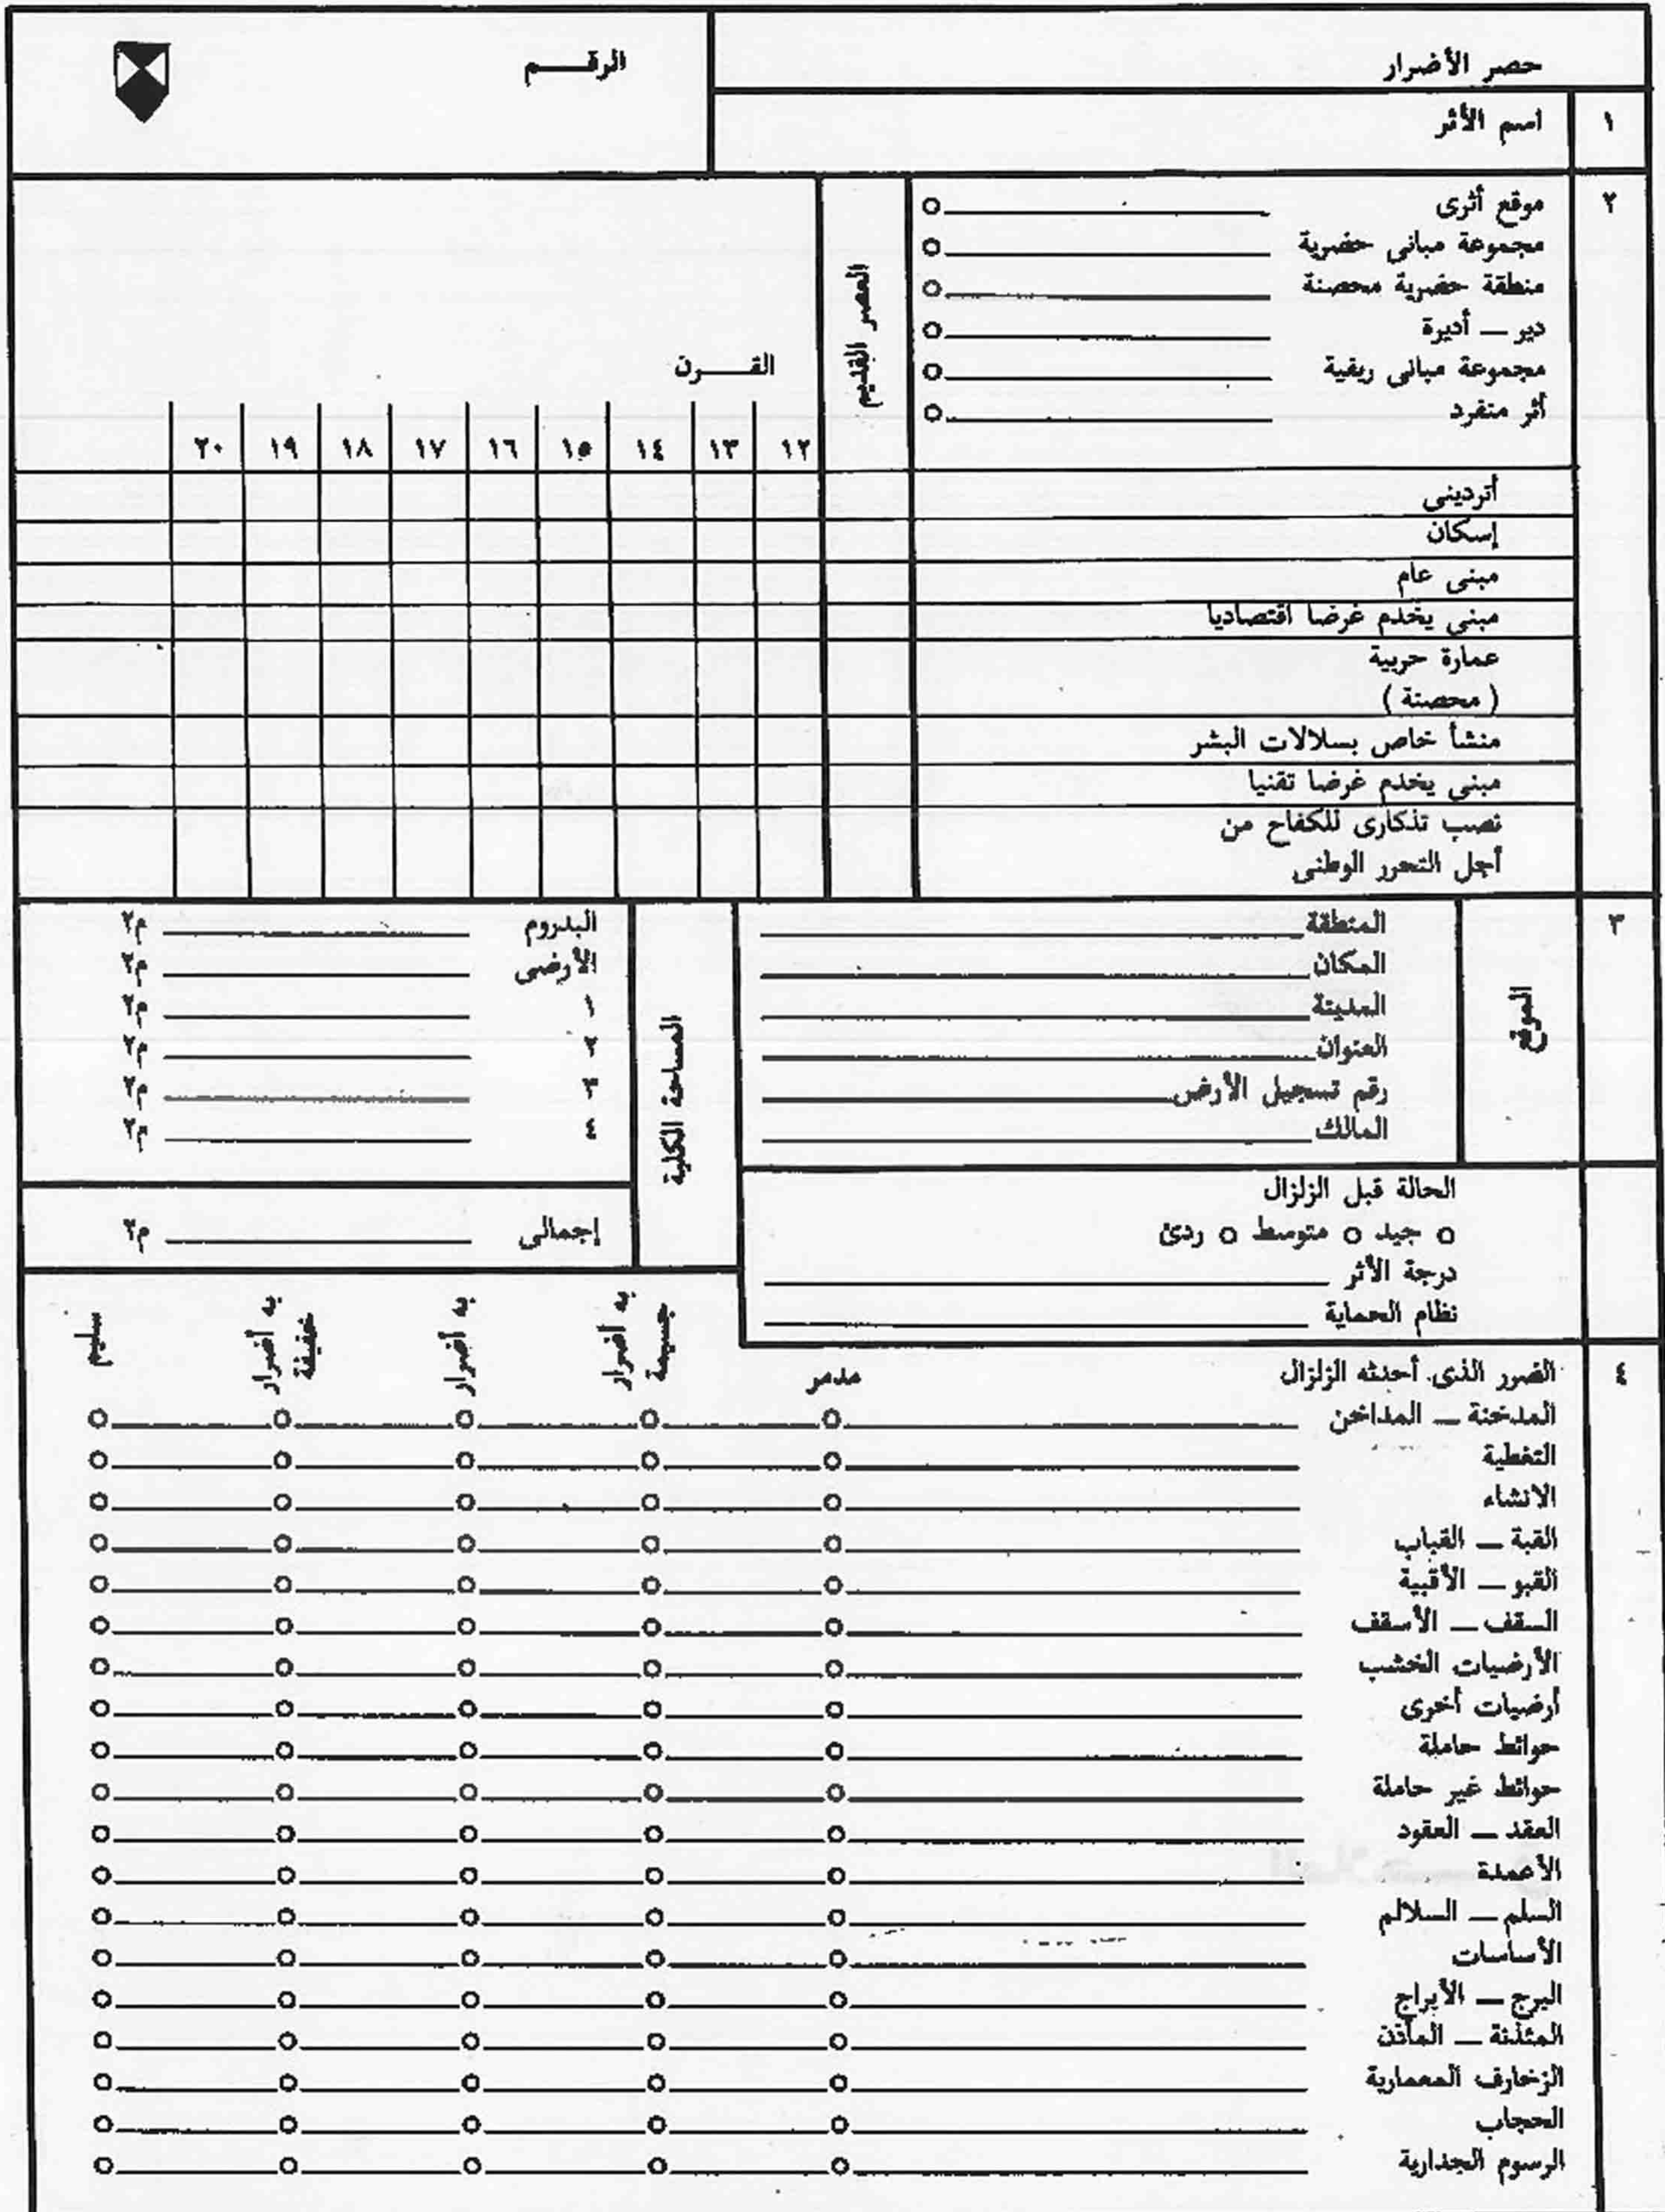 حصر الأضرار
الرقــــم
١ اسم الأثر
٢ موقع أثرى
مجموعة مبانى حضرية
منطقة حضرية محصنة
دير ــ أديرة
مجموعة مبانى ريفية
أثر منفرد
العصر القديم
القــــرن
١٢ ١٣ ١٤ ١٥ ١٦ ١٧ ١٨ ١٩ ٢٠
أثردينى
إسكان
مبنى عام
مبنى يخدم غرضا اقتصاديا
عمارة حربية
( محصنة )
منشأ خاص بسلالات البشر
مبنى يخدم غرضا تقنيا
نصب تذكارى للكفاح من
أجل التحرر الوطنى
٣ الموقع
المنطقة
المكان
المدينة
العنوان
رقم تسجيل الأرض
المالك
المساحة الكلية
البدروم م٢
الأرضى م٢
١ م٢
٢ م٢
٣ م٢
٤ م٢
إجمالى م٢
الحالة قبل الزلزال
o جيد o متوسط o ردئ
درجة الأثر
نظام الحماية
٤ الضرر الذى أحدثه الزلزال
مدمر
به أضرار جسيمة
به أضرار
به أضرار خفيفة
سليم
المدخنة ــ المداخن
التغطية
الانشاء
القبة ــ القباب
القبو ــ الأقبية
السقف ــ الأسقف
الأرضيات الخشب
أرضيات أخرى
حوائط حاملة
حوائط غير حاملة
العقد ــ العقود
الأعمدة
السلم ــ السلالم
الأساسات
البرج ــ الأبراج
المئذنة ــ المآذن
الزخارف المعمارية
الحجاب
الرسوم الجدارية